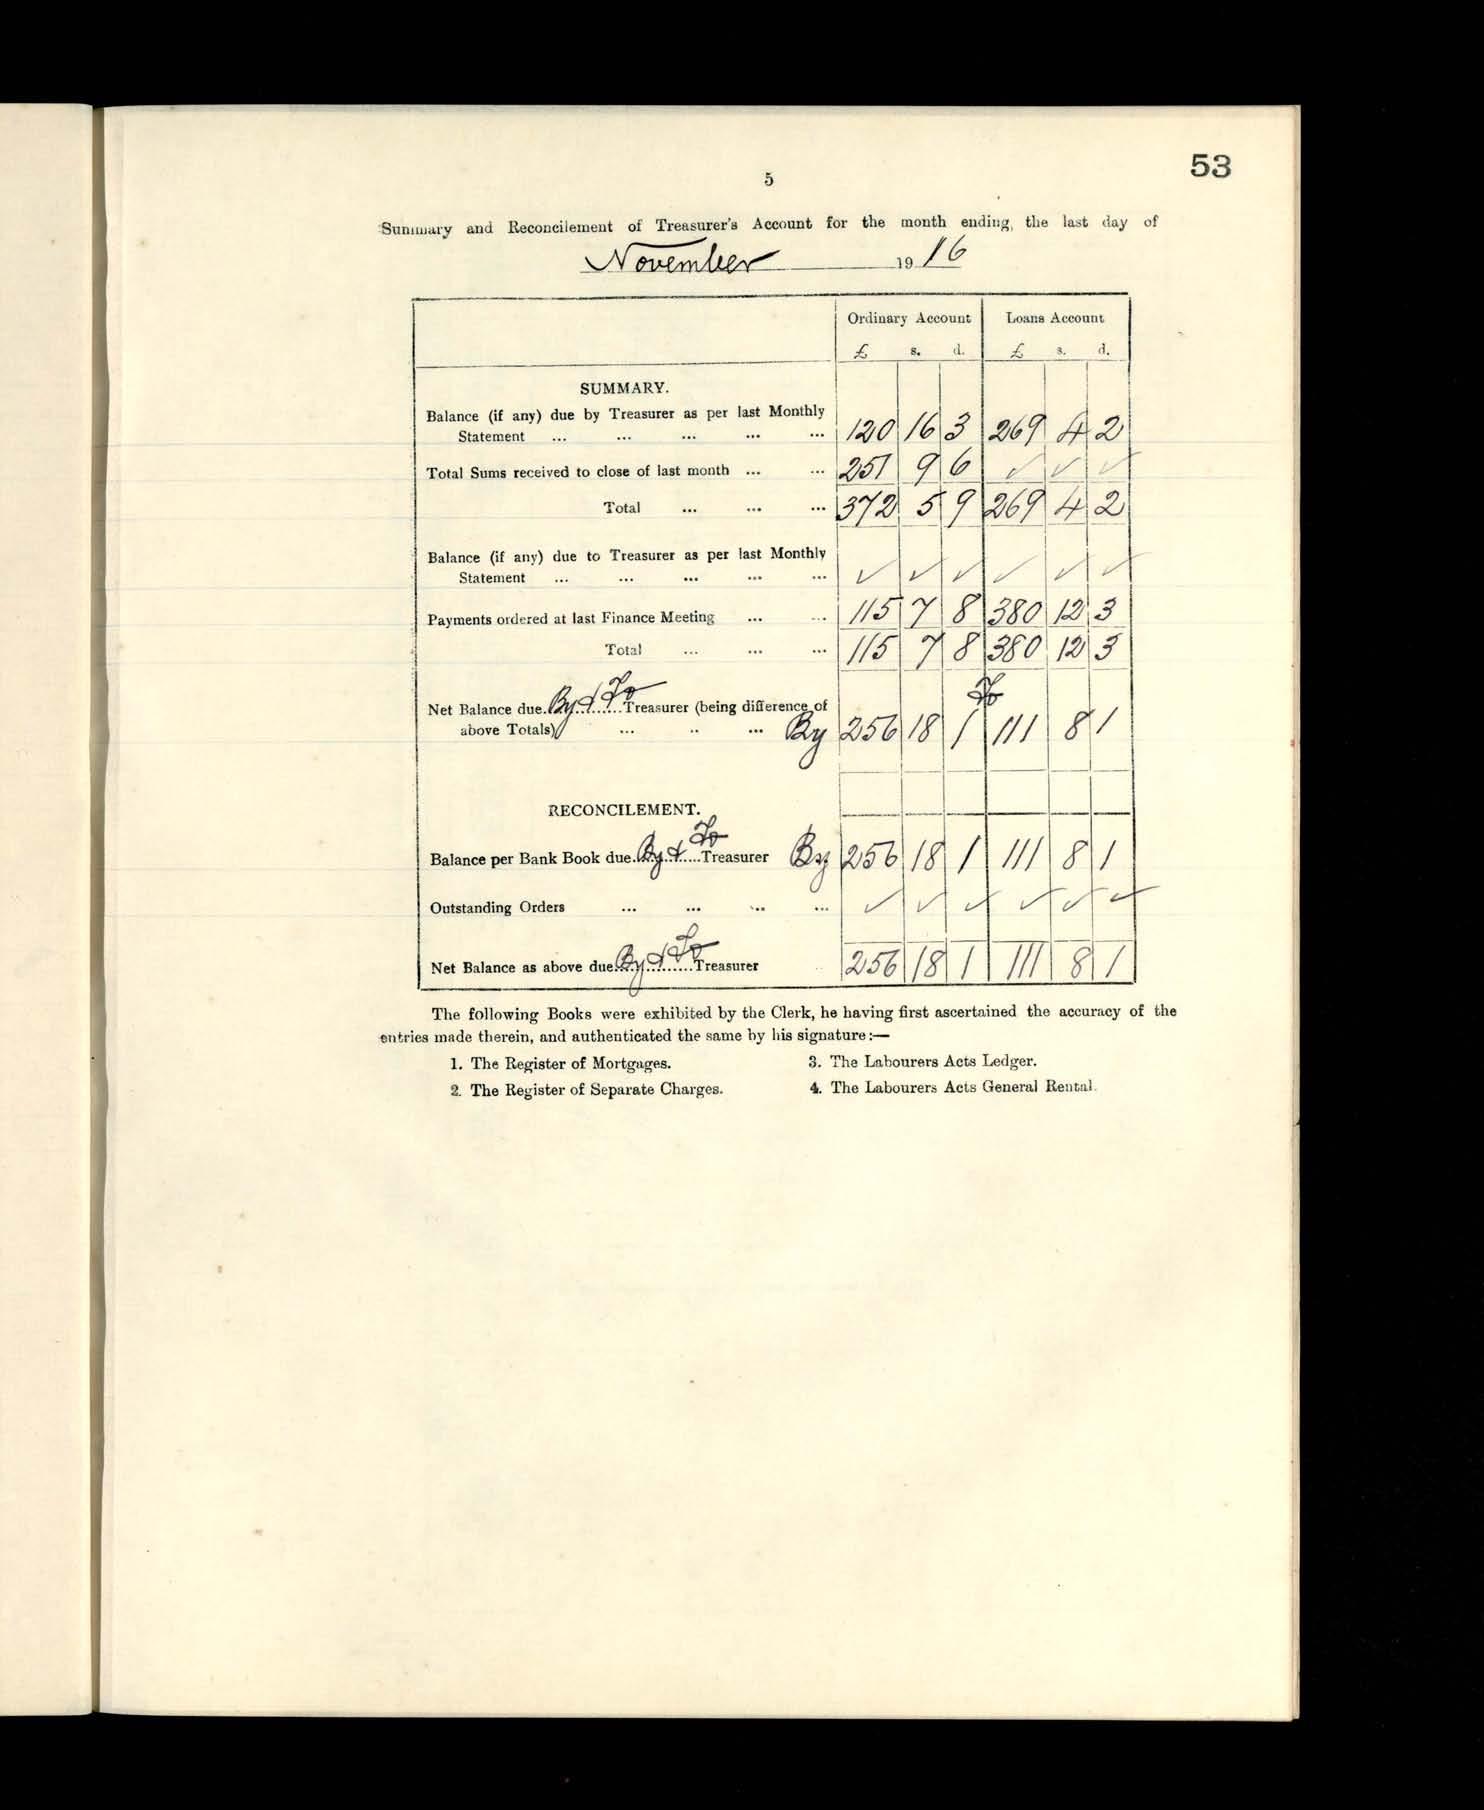 53
5
Summary and Reconcilement of Treasurer's Account for the month ending, the last day of
November 1916
Ordinary Account Loans Account
£ s. d. £ s. d.
SUMMARY.
Balance (if any) due by Treasurer as per last Monthly
Statement ... ... ... ... ... 120 16 3 269 4 2
Total Sums received to close of last month ... ... 251 9 6 ✓ ✓ ✓
Total ... ... ... 372 5 9 269 4 2
Balance (if any) due to Treasurer as per last Monthly
Statement ... ... ... ... ... ✓ ✓ ✓ ✓ ✓ ✓
Payments ordered at last Finance Meeting ... ... 115 7 8 380 12 3
Total ... ... ... 115 7 8 380 12 3
Net Balance due By & To Treasurer (being difference of To
above Totals) ... ... ... By 256 18 1 111 8 1
RECONCILEMENT.
Balance per Bank Book due By & To Treasurer By 256 18 1 111 8 1
Outstanding Orders ... ... ... ... ✓ ✓ ✓ ✓ ✓ ✓
Net Balance as above due By & To Treasurer 256 18 1 111 8 1
The following Books were exhibited by the Clerk, he having first ascertained the accuracy of the
entries made therein, and authenticated the same by his signature:—
1. The Register of Mortgages. 3. The Labourers Acts Ledger.
2. The Register of Separate Charges. 4. The Labourers Acts General Rental.